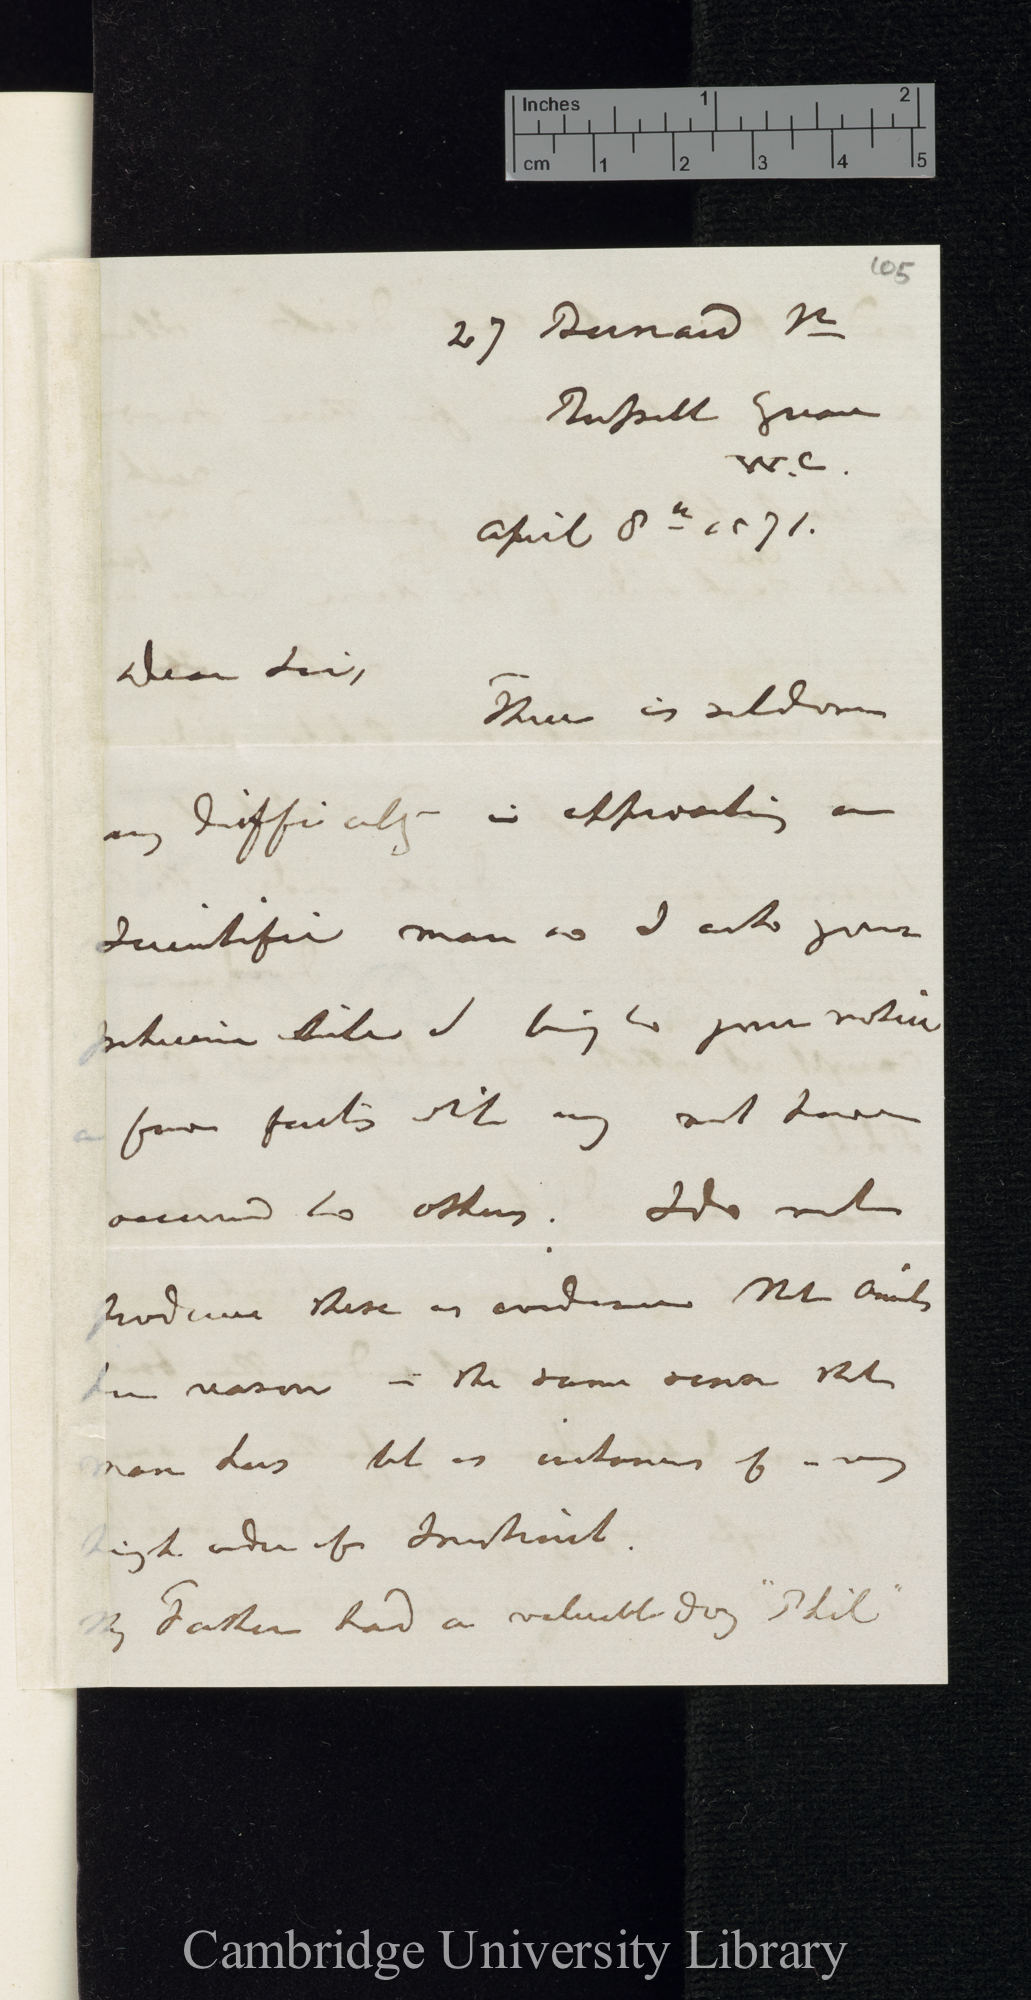 Inches 1 2
cm 1 2 3 4 5
105
27 Bernard St
Russell Square
W.C.
April 8th 1871.
Dear Sir,
There is seldom
any difficulty in approaching a
Scientific man so I ask your
patience while I bring to your notice
a few facts which may not have
occurred to others. I do not
produce these as evidence that animals
have reason in the same sense that
man has but as instances of a very
high order of Instinct.
My Father had a valuable dog "Phil"
Cambridge University Library